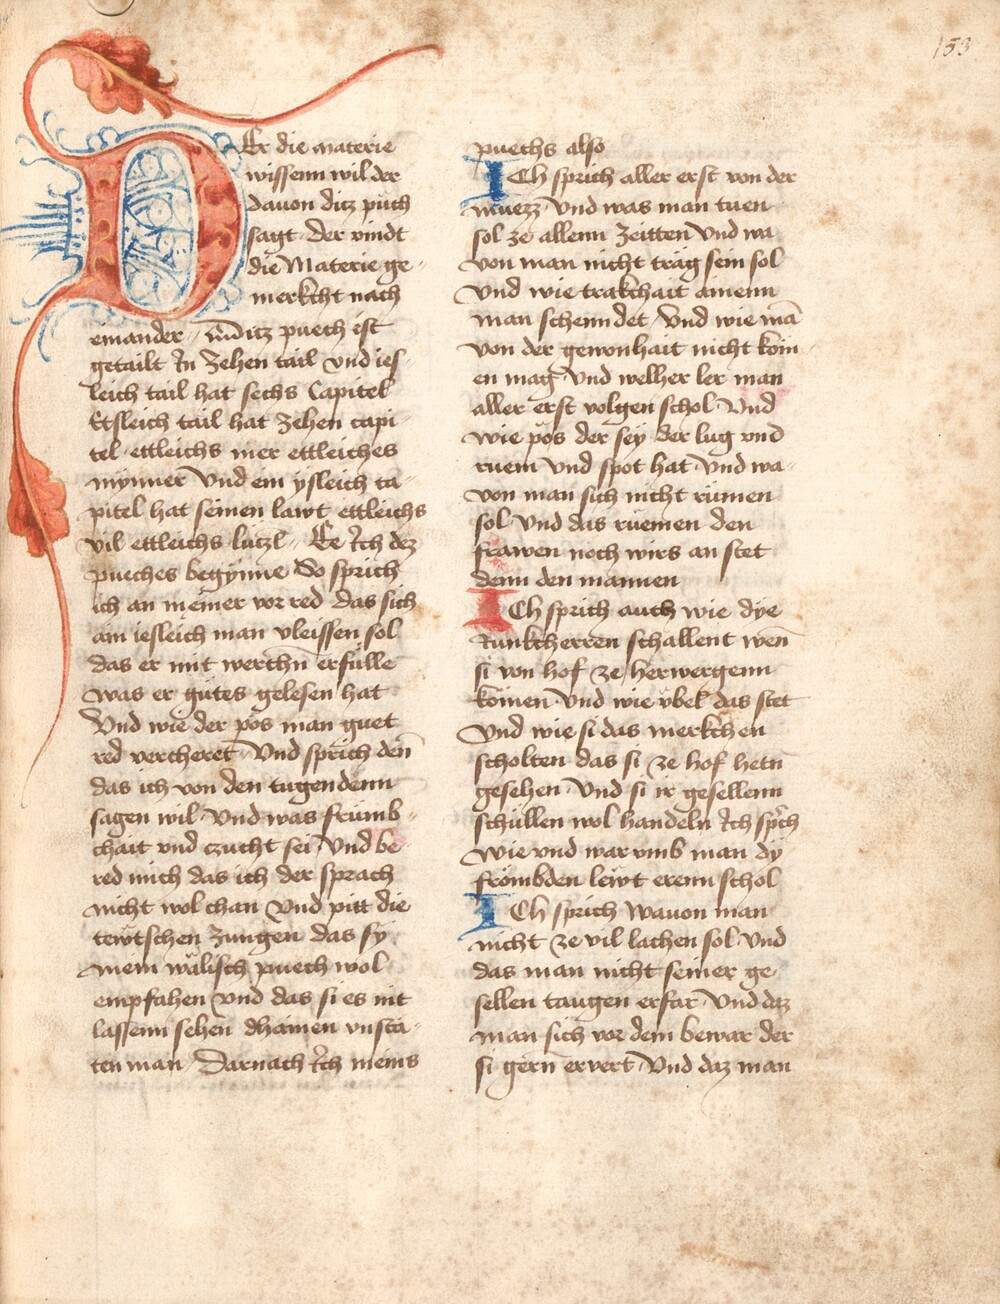 153
DEr die materie
wissenn wil der
dauon ditz puch
sagt der vindt
die Materie ge-
merkcht nach
einander vnd ditz puech ist
getailt In Zehen tail vnd ies-
leich tail hat sechs Capitel
Etsleich tail hat Zehen capi-
tel ettleichs mer ettleiches
mynner Vnd ein ysleich ca-
pitel hat seinen lawt ettleichs
vil ettleichs lutzl Ee Ich dez
pueches begynne So sprich
ich an meiner vor red das sich
ain iesleich man vleissen sol
das er mit werchn erfülle
was er gutes gelesen hat
Vnd wie der pos man guet
red vercheret Vnd sprich den
das ich von den tugendenn
sagen wil Vnd was frumb-
chait vnd czucht sei Vnd be-
red mich das ich der sprach
nicht wol chan Vnd pitt die
tewtschen Zungen das sy
mein wälisch puech wol
empfahen Vnd das si es nit
lassenn sehen dhainen vnsta-
ten man Darnach Ich meins
puechs also
ICh sprich aller erst von der
muezz Vnd was man tuen
sol ze allenn Zeitten Vnd wa
von man nicht träg sein sol
Vnd wie trakchait ainenn
man schenndet Vnd wie mā
von der gewonhait nicht kom-
en mag Vnd welher ler man
aller erst volgen schol Vnd
wie pös der sey der lug vnd
ruem Vnd spot hat Vnd wa-
von man sich nicht rümen
sol Vnd das ruemen den
frawen noch wirs an stet
denn den mannen
ICh sprich auch wie dye
Iunkcherren schallent wen̄
si von hof ze herwergenn
komen Vnd wie vbel das stet
Vnd wie si das merkchen
scholten das si ze hof hetn
gesehen Vnd si ir gesellenn
schüllen wol handeln Ich sprich
wie vnd war vmb man dy
frömbden lewt erenn schol
ICh sprich Wauon man
nicht ze vil lachen sol Vnd
das man nicht seiner ge
sellen taugen erfar Vnd daz
man sich vor dem bewar der
si gern ervert Vnd daz man